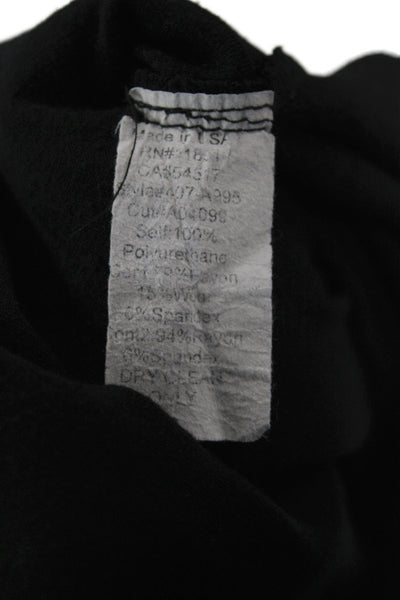 Made in USA
CA#54317
Style#407-A998
Cut#A04099
Self:100%
Polyurethane
Rayon
Wool
6%Spandex
94%Rayon
6%Spandex
DRY CLEAN
ONLY